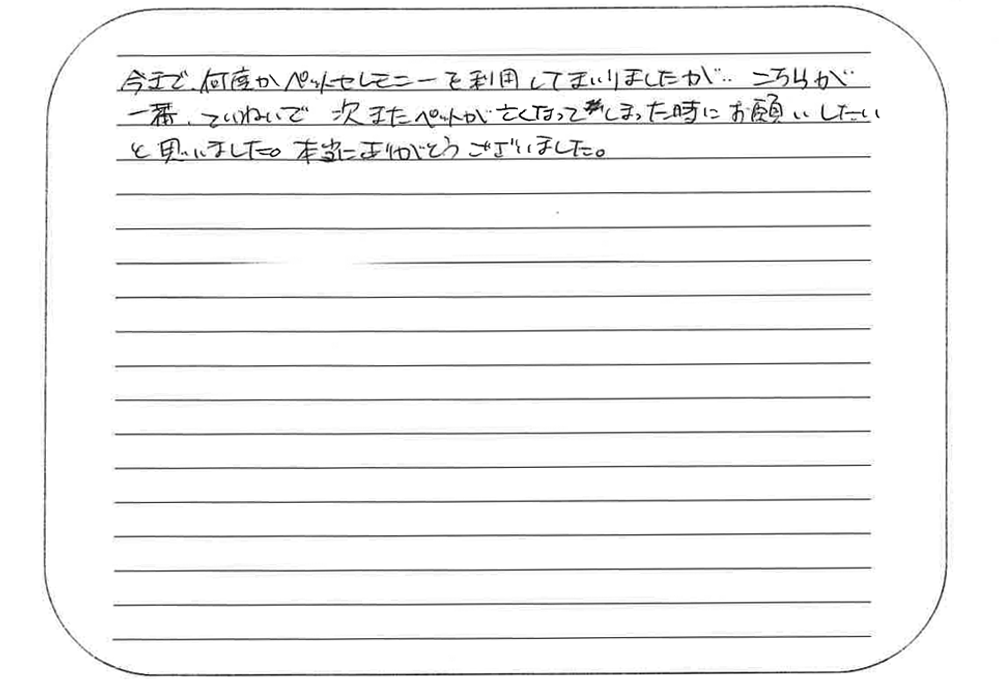 今まで、何度かペットセレモニーを利用してまいりましたが‥ こちらが
一番、ていねいで 次またペットが亡くなってしまった時にお願いしたい
と思いました。本当にありがとうございました。